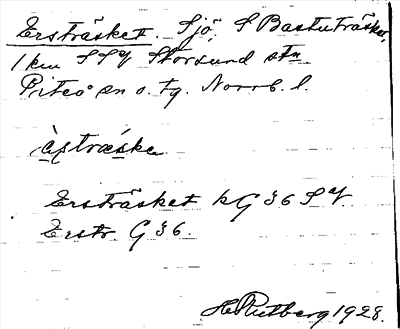 Ersträsket. Sjö, S Bastuträsket,
1 km SSV Storsund stn
Piteå sn o. tg. Norrb. l.
Ersträsket kG 36 SV.
Erstr G 36.
H Rutberg 1928.